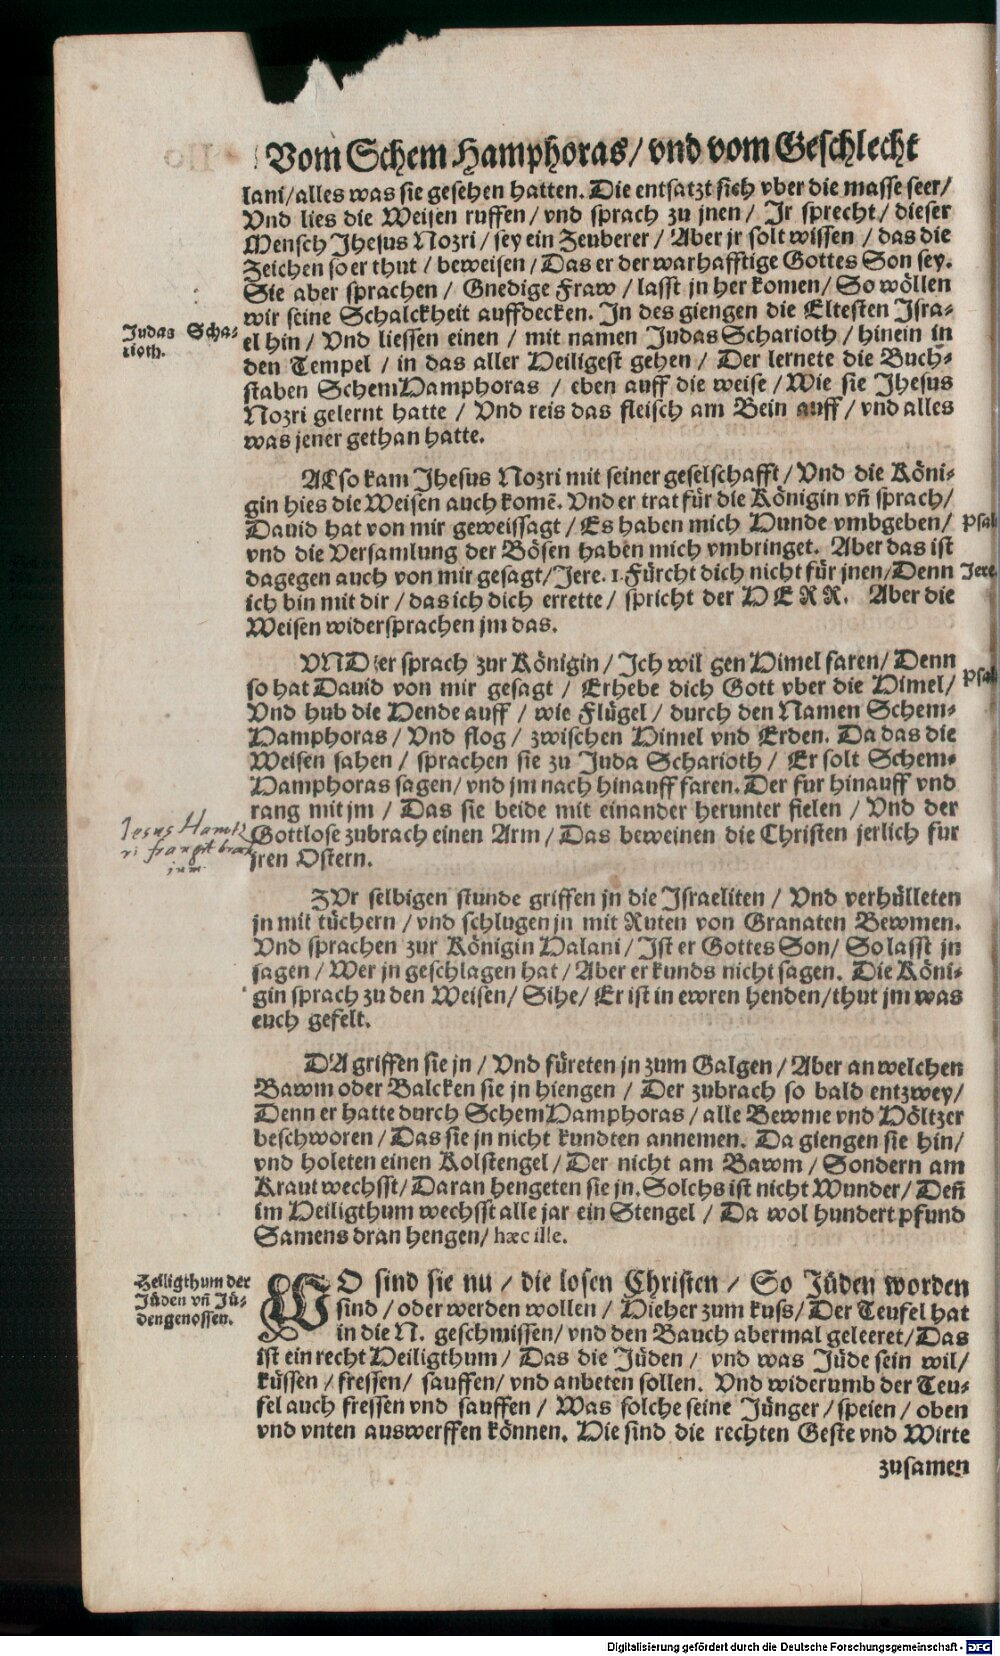 Vom Schem Hamphoras/ vnd vom Geschlecht
lani/alles was sie gesehen hatten. Die entsatzt sich vber die masse seer/
Vnd lies die Weisen ruffen/ vnd sprach zu jnen/ Jr sprecht/ dieser
Mensch Jhesus Nozri/ sey ein Zeuberer/ Aber jr solt wissen/ das die
Zeichen so er thut/ beweisen/ Das er der warhafftige Gottes Son sey.
Sie aber sprachen/ Gnedige Fraw/ lasst jn her komen/ So wöllen
wir seine Schalckheit auffdecken. In des giengen die Eltesten Isra-
el hin/ Vnd liessen einen/ mit namen Judas Scharioth/ hinein in
den Tempel/ in das aller Heiligest gehen/ Der lernete die Buch-
staben SchemHamphoras/ eben auff die weise/ Wie sie Jhesus
Nozri gelernt hatte/ Vnd reis das fleisch am Bein auff/ vnd alles
was jener gethan hatte.
Judas Scha-
rioth.
ALso kam Jhesus Nozri mit seiner geselschafft/ Vnd die Köni-
gin hies die Weisen auch komē. Vnd er trat für die Königin vñ sprach/
Dauid hat von mir geweissagt/ Es haben mich Hunde vmbgeben/
vnd die Versamlung der Bösen haben mich vmbringet. Aber das ist
dagegen auch von mir gesagt/Jere. 1. Fürcht dich nicht für jnen/Denn
ich bin mit dir/ das ich dich errette/ spricht der HERR. Aber die
Weisen widersprachen jm das.
Psal
Jere
VND er sprach zur Königin/ Ich wil gen Himel faren/ Denn
so hat Dauid von mir gesagt/ Erhebe dich Gott vber die Himel/
Vnd hub die Hende auff/ wie Flügel/ durch den Namen Schem-
Hamphoras/ Vnd flog/ zwischen Himel vnd Erden. Da das die
Weisen sahen/ sprachen sie zu Juda Scharioth/ Er solt Schem-
Hamphoras sagen/ vnd jm nach hinauff faren. Der fur hinauff vnd
rang mit jm/ Das sie beide mit einander herunter fielen/ Vnd der
Gottlose zubrach einen Arm/ Das beweinen die Christen jerlich fur
jren Ostern.
Psal
Jesus
frangit
ZVr selbigen stunde griffen jn die Israeliten/ Vnd verhülleten
jn mit tüchern/ vnd schlugen jn mit Ruten von Granaten Bewmen.
Vnd sprachen zur Königin Halani/ Ist er Gottes Son/ So lasst jn
sagen/ Wer jn geschlagen hat/ Aber er kunds nicht sagen. Die Köni-
gin sprach zu den Weisen/ Sihe/ Er ist in ewren henden/ thut jm was
euch gefelt.
DA griffen sie jn/ Vnd füreten jn zum Galgen/ Aber an welchen
Bawm oder Balcken sie jn hiengen/ Der zubrach so bald entzwey/
Denn er hatte durch SchemHamphoras/ alle Bewme vnd Höltzer
beschworen/ Das sie jn nicht kundten annemen. Da giengen sie hin/
vnd holeten einen Kolstengel/ Der nicht am Bawm/ Sondern am
Kraut wechsst/ Daran hengeten sie jn. Solchs ist nicht Wunder/ Deñ
im Heiligthum wechsst alle jar ein Stengel/ Da wol hundert pfund
Samens dran hengen/ hæc ille.
Heiligthum der
Jüden vñ Jü-
dengenossen.
WO sind sie nu/ die losen Christen/ So Jüden worden
sind/ oder werden wollen/ Hieher zum kuss/ Der Teufel hat
in die N. geschmissen/ vnd den Bauch abermal geleeret/ Das
ist ein recht Heiligthum/ Das die Jüden/ vnd was Jüde sein wil/
küssen/ fressen/ sauffen/ vnd anbeten sollen. Vnd widerumb der Teu-
fel auch fressen vnd sauffen/ Was solche seine Jünger/ speien/ oben
vnd vnten auswerffen können. Hie sind die rechten Geste vnd Wirte
zusamen
Digitalisierung gefördert durch die Deutsche Forschungsgemeinschaft - DFG